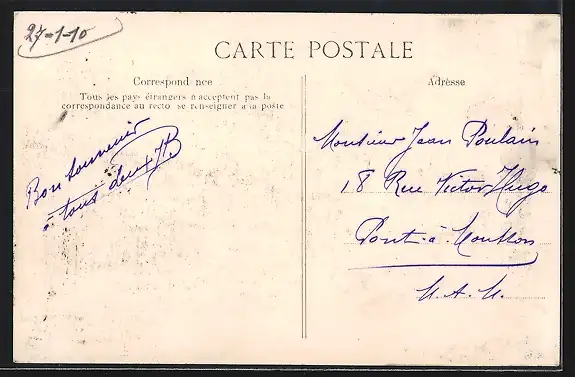 27-1-10
CARTE POSTALE
Correspondance
Tous les pays étrangers n'acceptent pas la
correspondance au recto se renseigner à la poste
Bon souvenir
à tous deux
Adresse
Monsieur Jean Poulain
18 Rue Victor Hugo
Pont-à-Mousson
M. & M.